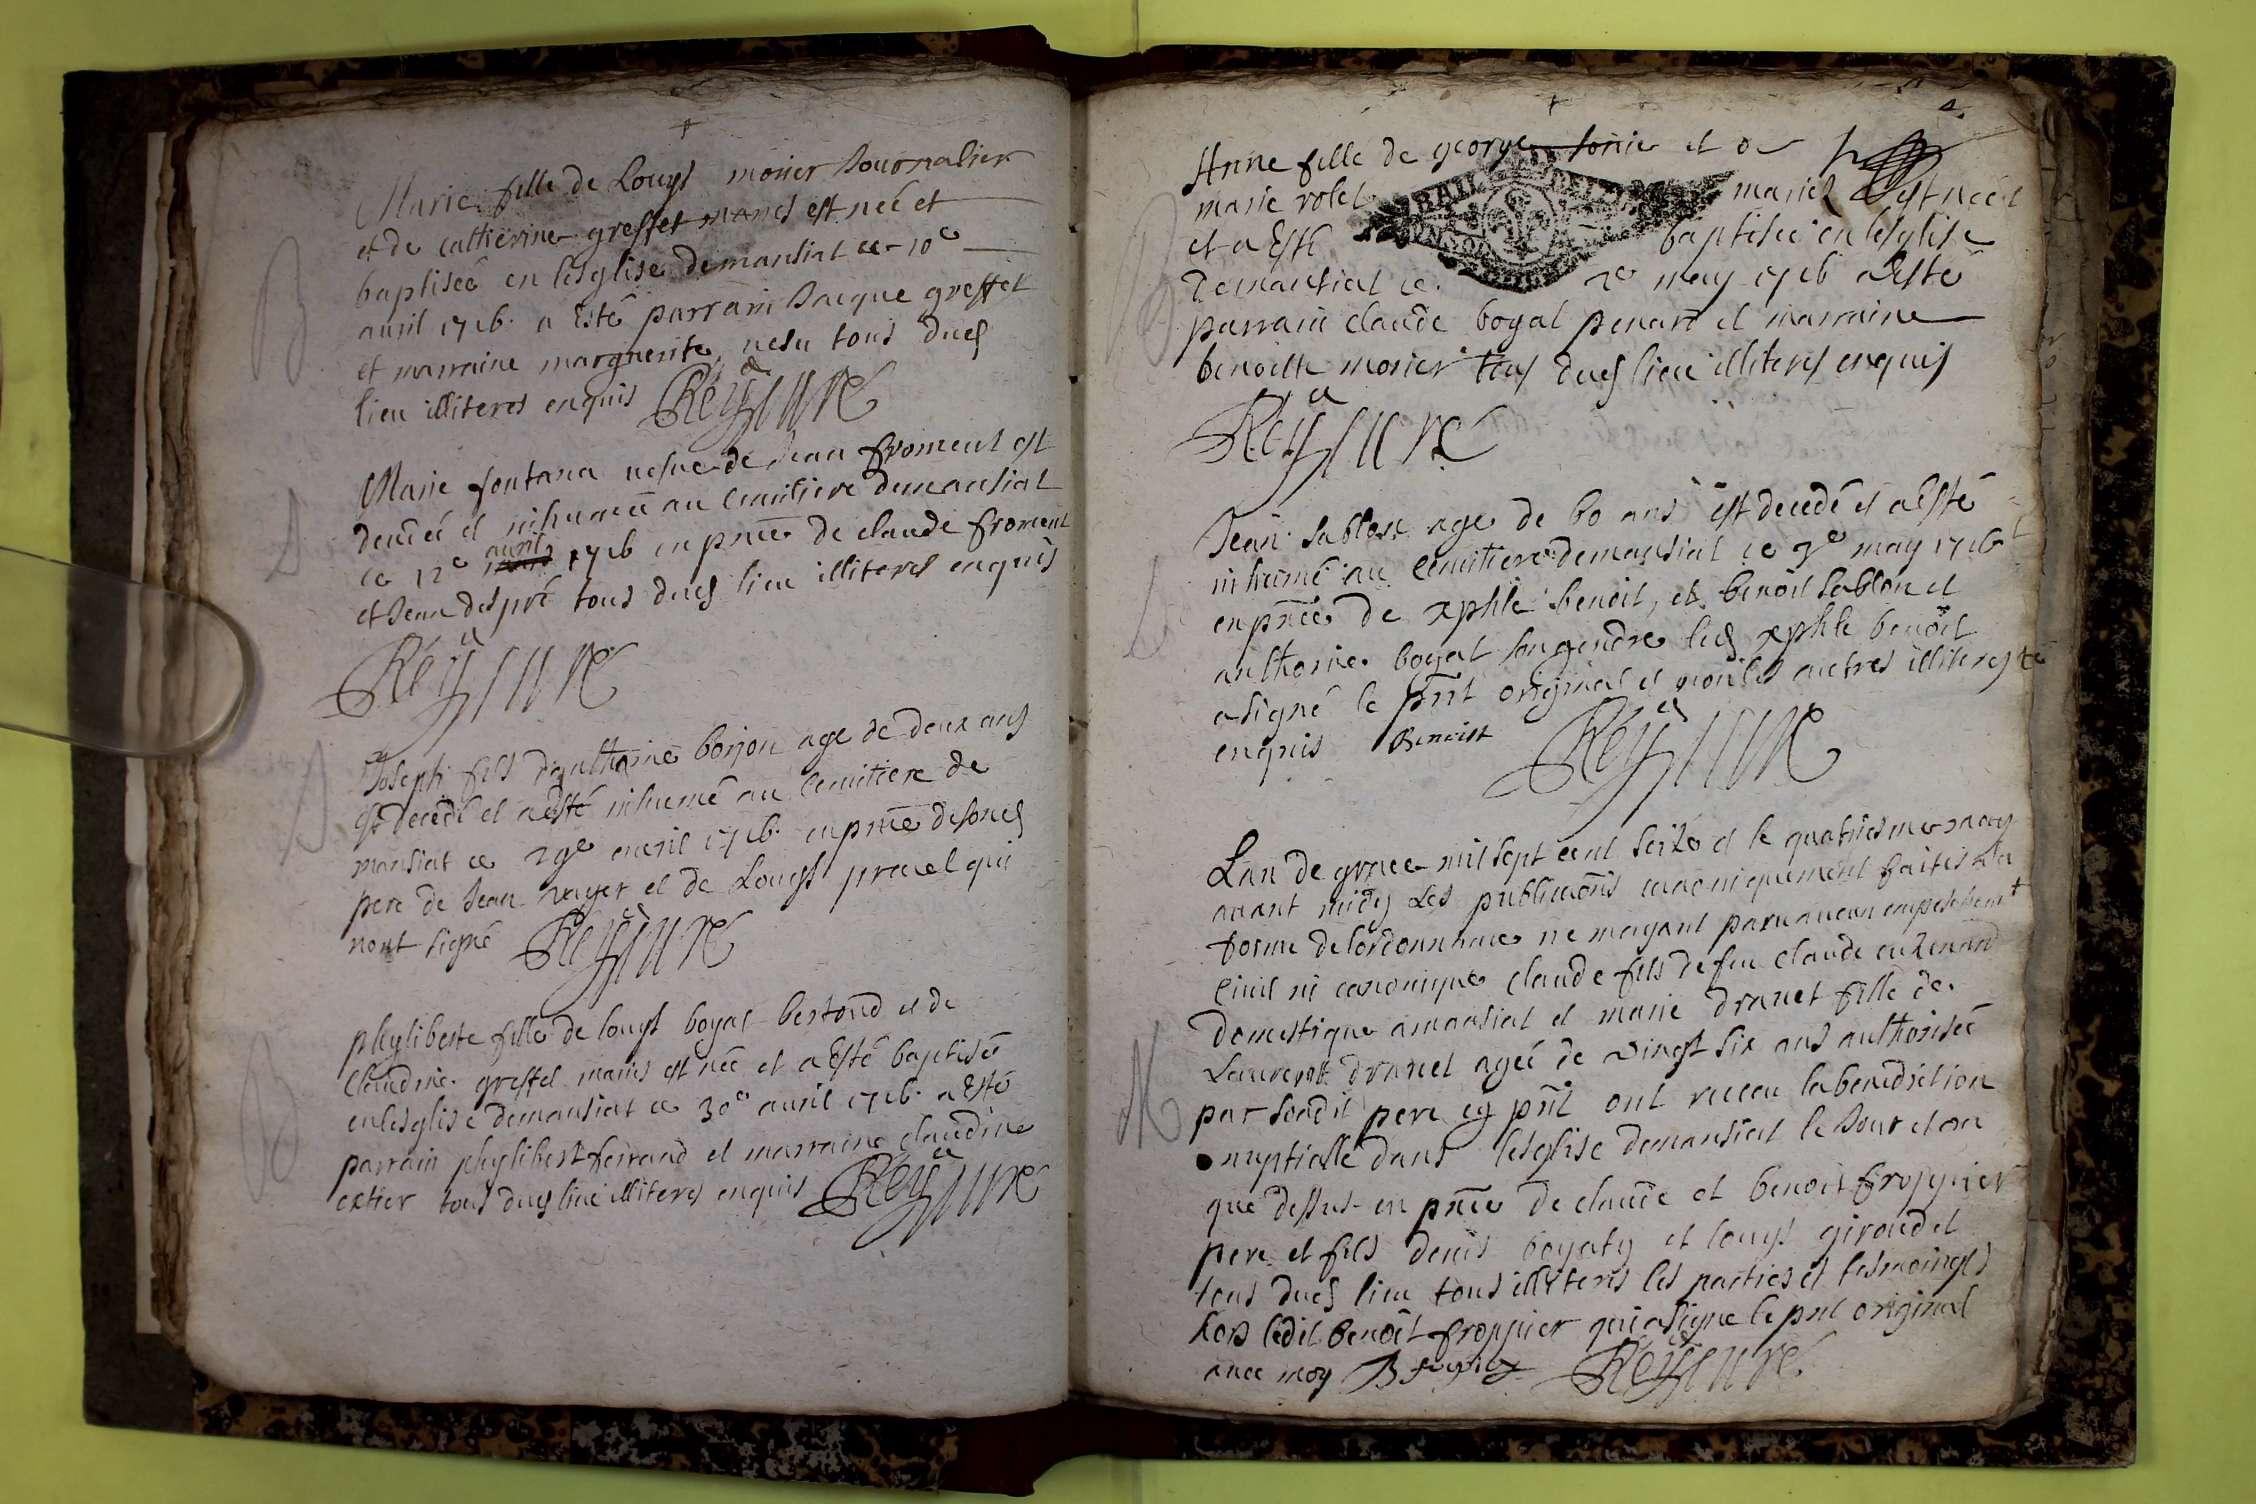 Marie fille de Louys morier Journalier
et de catherine greffet mariés est néé et
baptiséé en lesglise demansiat ce 10e
avril 1716. a Esté parrain Jacque greffet
et marraine marguerite vesu tous dud
lieu illiteres enquis Reÿ Cure
B
Marie fontana vefve de Jean froment est
decedéé et inhuméé au Cemitiere demansiat
ce 12e avril 1716 en pnce de claude froment
et Jean despré tous dud lieu illiteres enquis
Reÿ Cure
Joseph fils danthoine borjon age de deux ans
Est decedé et a Esté inhumé au Cemitiere de
mansiat ce 29e avril 1716. en pnce de sond
pere de Jean et de Louys pruel qui
nont signé Reÿ Cure
phyliberte fille de louys boyat bertond et de
Claudine greffet mariés est néé et a Esté baptiséé
en lesglise demansiat ce 30e avril 1716. a Esté
parrain phylibert ferrand et marraine claudine
tous dud lieu illiteres enquis Reÿ Cure
B
Anne fille de george et de
marie rolet mariés est néé
et a Esté baptiséé en lesglise
demansiat ce. 2e may 1716 a Esté
parrain claude boyat penard et marraine
benoitte morier tous dud lieu illiteres enquis
Reÿ Cure
B
Jean Sablon age de 60 ans est decedé et a Esté
inhumé au Cemitiere demansiat ce 3e may 1716
en pnce de xphle benoit, et benoit Sablon et
anthoine boyat son gendre led xphle benoit
a signé le pnt original et non les autres illiteres
enquis Benoist Reÿ Cure
Lan de grace mil sept cent seize et le quatriesme may
avant midy Les publications canoniquement faites a la
forme de lordonnance ne mayant paru aucun empeschemt
Civil ni canonique claude fils de feu claude
domestique a mansiat et marie druet fille de
Laurent druet agéé de vingt six ans authoriséé
par sondit pere cy pnt ont receu la benediction
nuptialle dans lesglise demansiat le Jour et an
que dessus en pnce de claude et benoit froppier
pere et fils denis boyaty et louys giroudet
tous dud lieu tous illiteres les parties et tesmoings
hors ledit benoit froppier qui a signé le pnt original
avec moy B fropier Reÿ Cure
M